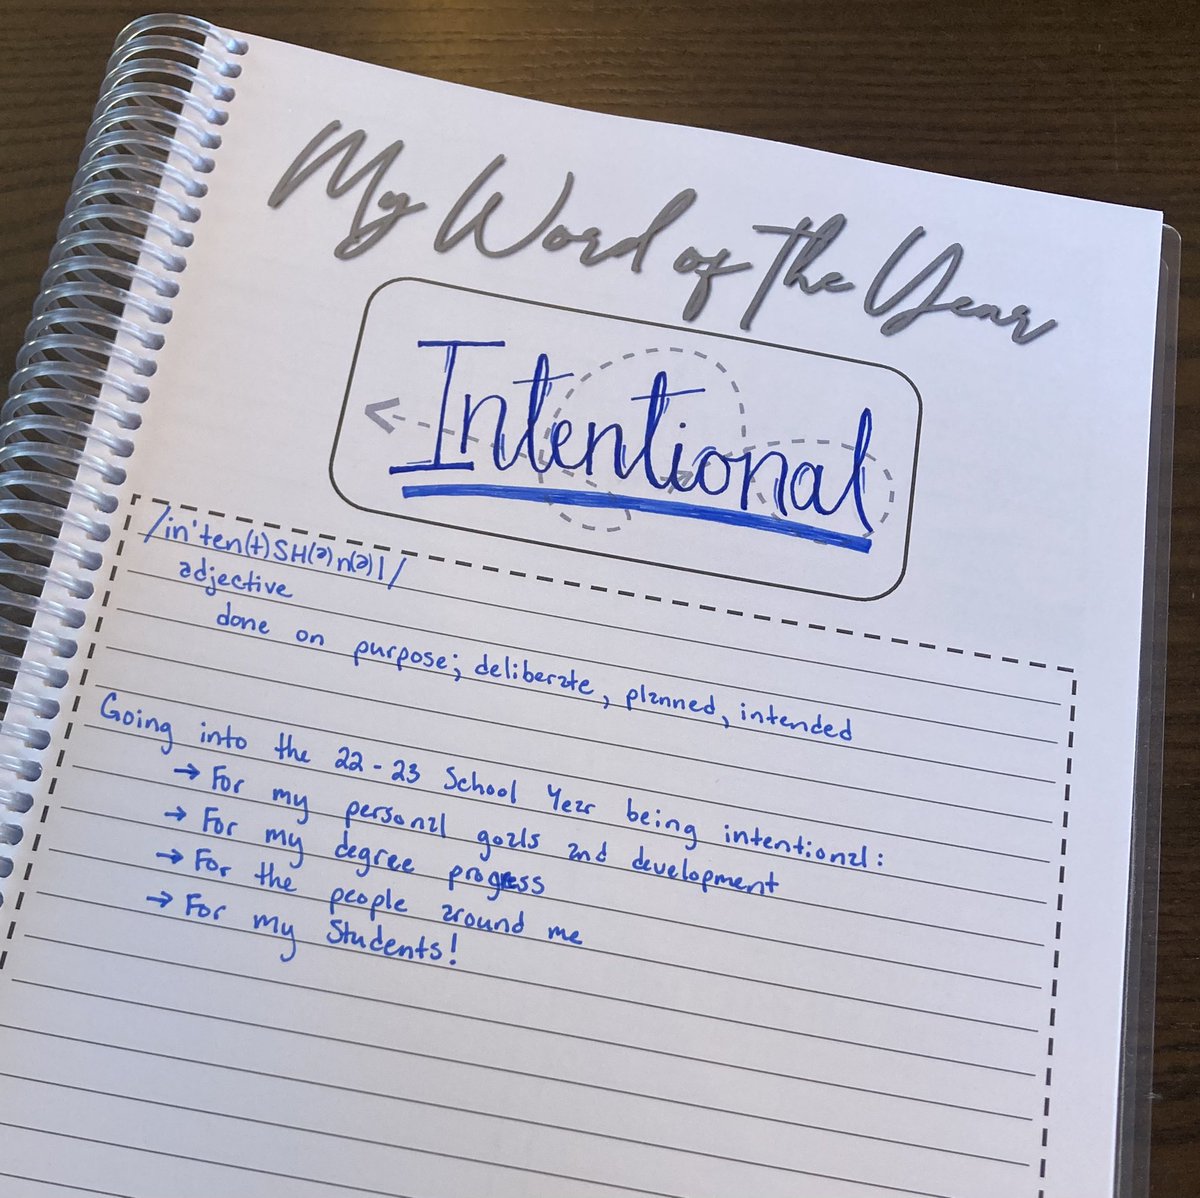 My Word of the Year
Intentional
/in'ten(t)SH(ə)n(ə)l/
adjective
done on purpose; deliberate, planned, intended
Going into the 22-23 School Year being intentional:
→ For my personal goals and development
→ For my degree progress
→ For the people around me
→ For my Students!